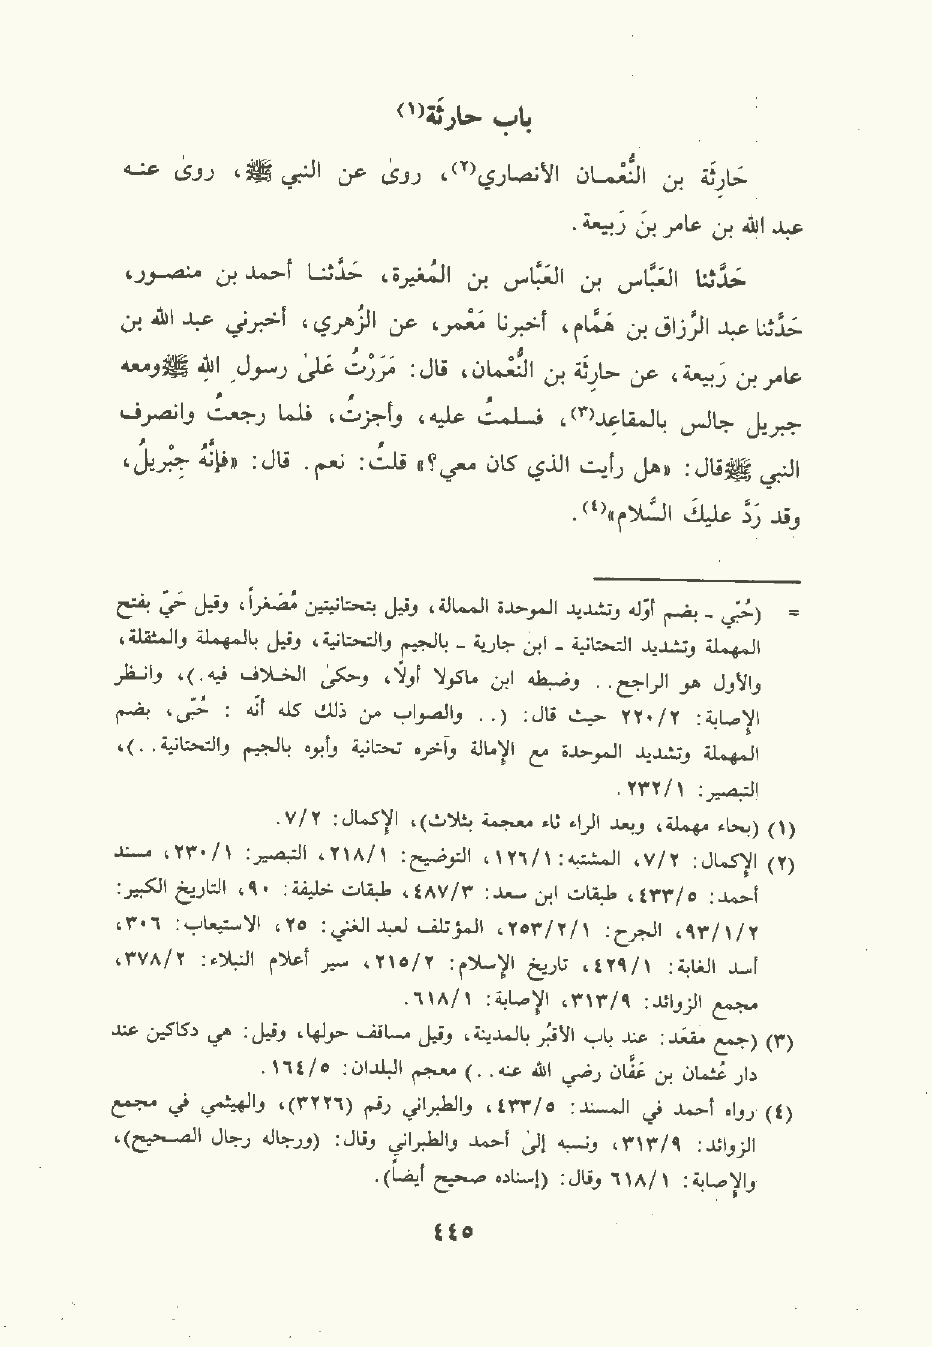 باب حارثَة(١)
حَارِثَة بن النُّعْمـان الأنصاري(٢)، روىٰ عن النبي ﷺ، روىٰ عنـه
عبد الله بن عامر بنَ رَبيعة.
حَدَّثنا العَبَّاس بن العَبَّاس بن المُغيرة، حَدَّثنـا أحمـد بن منصـور،
حَدَّثنا عبد الرزاق بن هَمَّام، أخبرنا مَعْمر، عن الزهري، أخبرني عبد الله بن
عامر بن رَبيعة، عن حارِثَة بن النُّعْمان، قال: مَرَرْتُ عَلىٰ رسول الله ﷺ ومعه
جبريل جالس بالمقاعِد(٣)، فسـلمتُ عليه، وأجزتُ، فلما رجعتُ وانصرف
النبي ﷺ قال: «هل رأيت الذي كان معي؟» قلتُ: نعم. قال: «فإنَّهُ جِبْريلُ،
وقد رَدَّ عليكَ السَّلام»(٤).
= (حُبّي - بضم أوّله وتشديد الموحدة الممالة، وقيل بتحتانيتين مُصَغراً، وقيل حَيّ بفتح
المهملة وتشديد التحتانية - ابن جارية - بالجيم والتحتانية، وقيل بالمهملة والمثقلة،
والأول هو الراجح.. وضبطه ابن ماكولا أولاً، وحكىٰ الخـلاف فيه.)، وانـظر
الإصابة: ٢/٢٢٠ حيث قال: (.. والصواب من ذلك كله أنه : حُبّى، بضم
المهملة وتشديد الموحدة مع الإمالة وآخره تحتانية وأبوه بالجيم والتحتانية..)،
التبصير: ١/٢٣٢.
(١) (بحاء مهملة، وبعد الراء ثاء معجمة بثلاث)، الإكمال: ٢/٧.
(٢) الإكمال: ٢/٧، المشتبه: ١/١٢٦، التوضيح: ١/٢١٨، التبصير: ١/٢٣٠، مسند
أحمد: ٥/٤٣٣، طبقات ابن سعد: ٣/٤٨٧، طبقات خليفة: ٩٠، التاريخ الكبير:
٢/١/٩٣، الجرح: ١/٢/٢٥٣، المؤتلف لعبد الغني: ٢٥، الاستيعاب: ٣٠٦،
أسد الغابة: ١/٤٢٩، تاريخ الإسلام: ٢/٢١٥، سير أعلام النبلاء: ٢/٣٧٨،
مجمع الزوائد: ٩/٣١٣، الإصابة: ١/٦١٨.
(٣) (جمع مقعَد: عند باب الأقبُر بالمدينة، وقيل مساقف حولها، وقيل: هي دكاكين عند
دار عُثمان بن عَفَّان رضي الله عنه..) معجم البلدان: ٥/١٦٤.
(٤) رواه أحمد في المسند: ٥/٤٣٣، والطبراني رقم (٣٢٢٦)، والهيثمي في مجمع
الزوائد: ٩/٣١٣، ونسبه إلىٰ أحمد والطبراني وقال: (ورجاله رجال الصـحيح)،
والإصابة: ١/٦١٨ وقال: (إسناده صحيح أيضاً).
٤٤٥